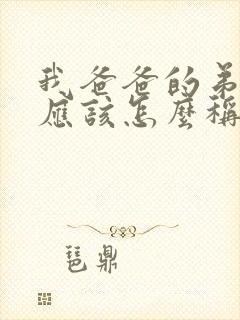 我爸爸的弟
應該怎麼稱
琶鼎